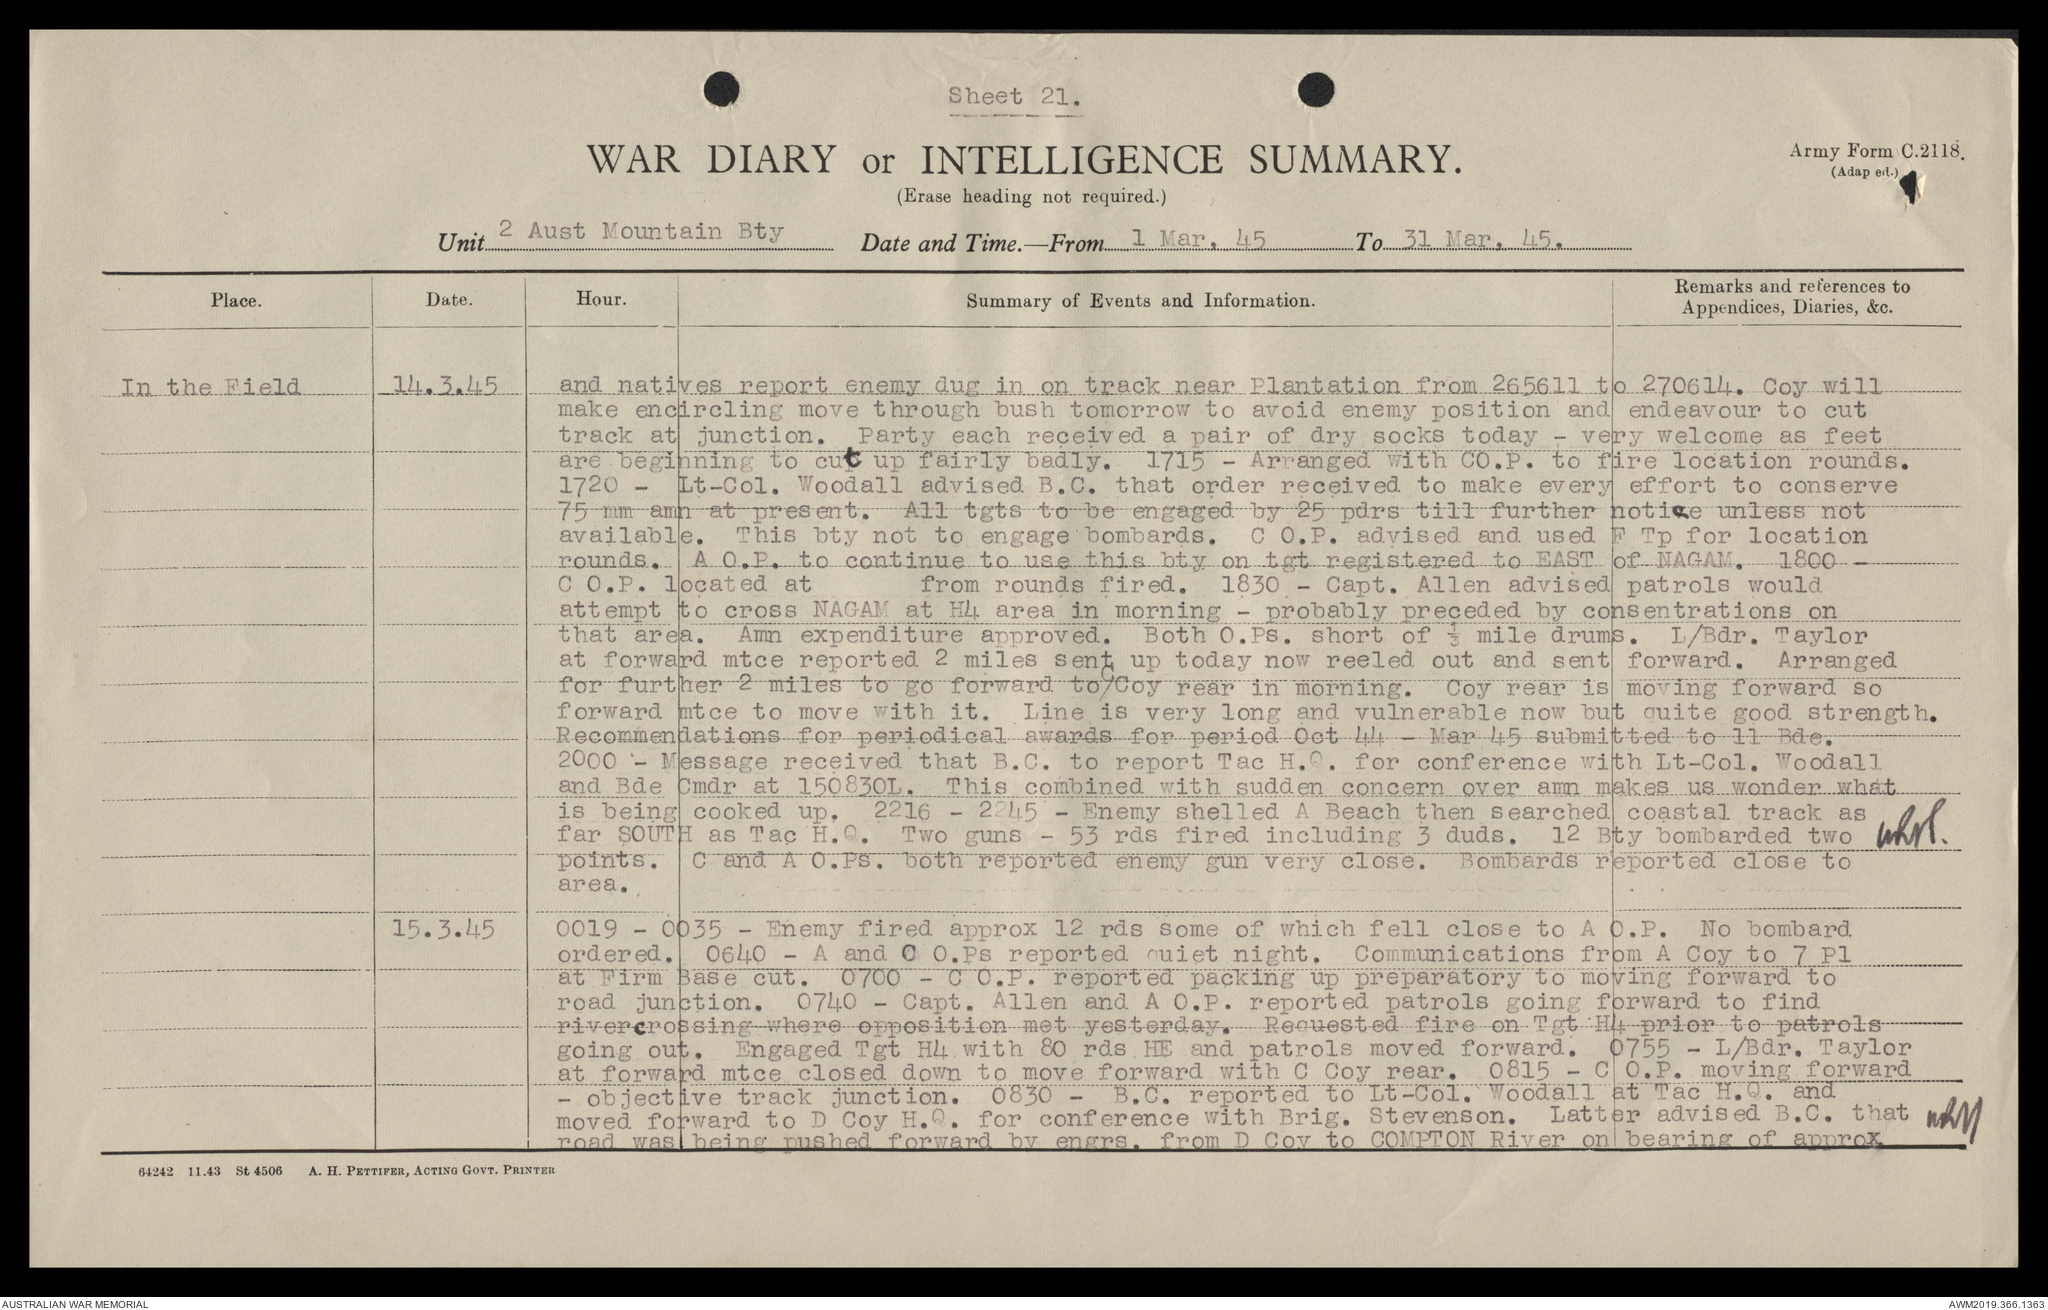 Sheet 21.
WAR DIARY or INTELLIGENCE SUMMARY.
Army Form C.2118.
(Adap ed.)
(Erase heading not required.)
Unit 2 Aust Mountain Bty Date and Time.—From 1 Mar, 45 To 31 Mar, 45.
Place. Date. Hour. Summary of Events and Information. Remarks and references to
Appendices, Diaries, &c.
In the Field 14.3.45 and natives report enemy dug in on track near Plantation from 265611 to 270614. Coy will
make encircling move through bush tomorrow to avoid enemy position and endeavour to cut
track at junction. Party each received a pair of dry socks today - very welcome as feet
are beginning to cut up fairly badly. 1715 - Arranged with CO.P. to fire location rounds.
1720 - Lt-Col. Woodall advised B.C. that order received to make every effort to conserve
75 mm amn at present. All tgts to be engaged by 25 pdrs till further notice unless not
available. This bty not to engage bombards. C O.P. advised and used F Tp for location
rounds. A O.P. to continue to use this bty on tgt registered to EAST of NAGAM. 1800 -
C O.P. located at from rounds fired. 1830 - Capt. Allen advised patrols would
attempt to cross NAGAM at H4 area in morning - probably preceded by consentrations on
that area. Amn expenditure approved. Both O.Ps. short of ⅓ mile drums. L/Bdr. Taylor
at forward mtce reported 2 miles sent up today now reeled out and sent forward. Arranged
for further 2 miles to go forward to C Coy rear in morning. Coy rear is moving forward so
forward mtce to move with it. Line is very long and vulnerable now but quite good strength.
Recommendations for periodical awards for period Oct 44 - Mar 45 submitted to 11 Bde.
2000 - Message received that B.C. to report Tac H.Q. for conference with Lt-Col. Woodall
and Bde Cmdr at 150830L. This combined with sudden concern over amn makes us wonder what
is being cooked up. 2216 - 2245 - Enemy shelled A Beach then searched coastal track as
far SOUTH as Tac H.Q. Two guns - 53 rds fired including 3 duds. 12 Bty bombarded two
points. C and A O.Ps. both reported enemy gun very close. Bombards reported close to
area.
15.3.45 0019 - 0035 - Enemy fired approx 12 rds some of which fell close to A O.P. No bombard
ordered. 0640 - A and C O.Ps reported quiet night. Communications from A Coy to 7 Pl
at Firm Base cut. 0700 - C O.P. reported packing up preparatory to moving forward to
road junction. 0740 - Capt. Allen and A O.P. reported patrols going forward to find
rivercrossing where opposition met yesterday. Requested fire on Tgt H4 prior to patrols
going out. Engaged Tgt H4 with 80 rds HE and patrols moved forward. 0755 - L/Bdr. Taylor
at forward mtce closed down to move forward with C Coy rear. 0815 - C O.P. moving forward
- objective track junction. 0830 - B.C. reported to Lt-Col. Woodall at Tac H.Q. and
moved forward to D Coy H.Q. for conference with Brig. Stevenson. Latter advised B.C. that
road was being pushed forward by engrs. from D Coy to COMPTON River on bearing of approx
64242 11.43 St 4506 A. H. PETTIFER, ACTING GOVT. PRINTER
AUSTRALIAN WAR MEMORIAL
AWM2019.366.1363